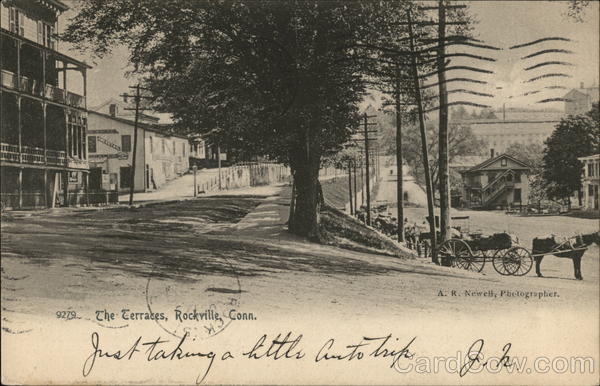 A. R. Newell, Photographer.
9279. The Terraces, Rockville, Conn.
Just taking a little Auto trip J. h.
CardCow.com